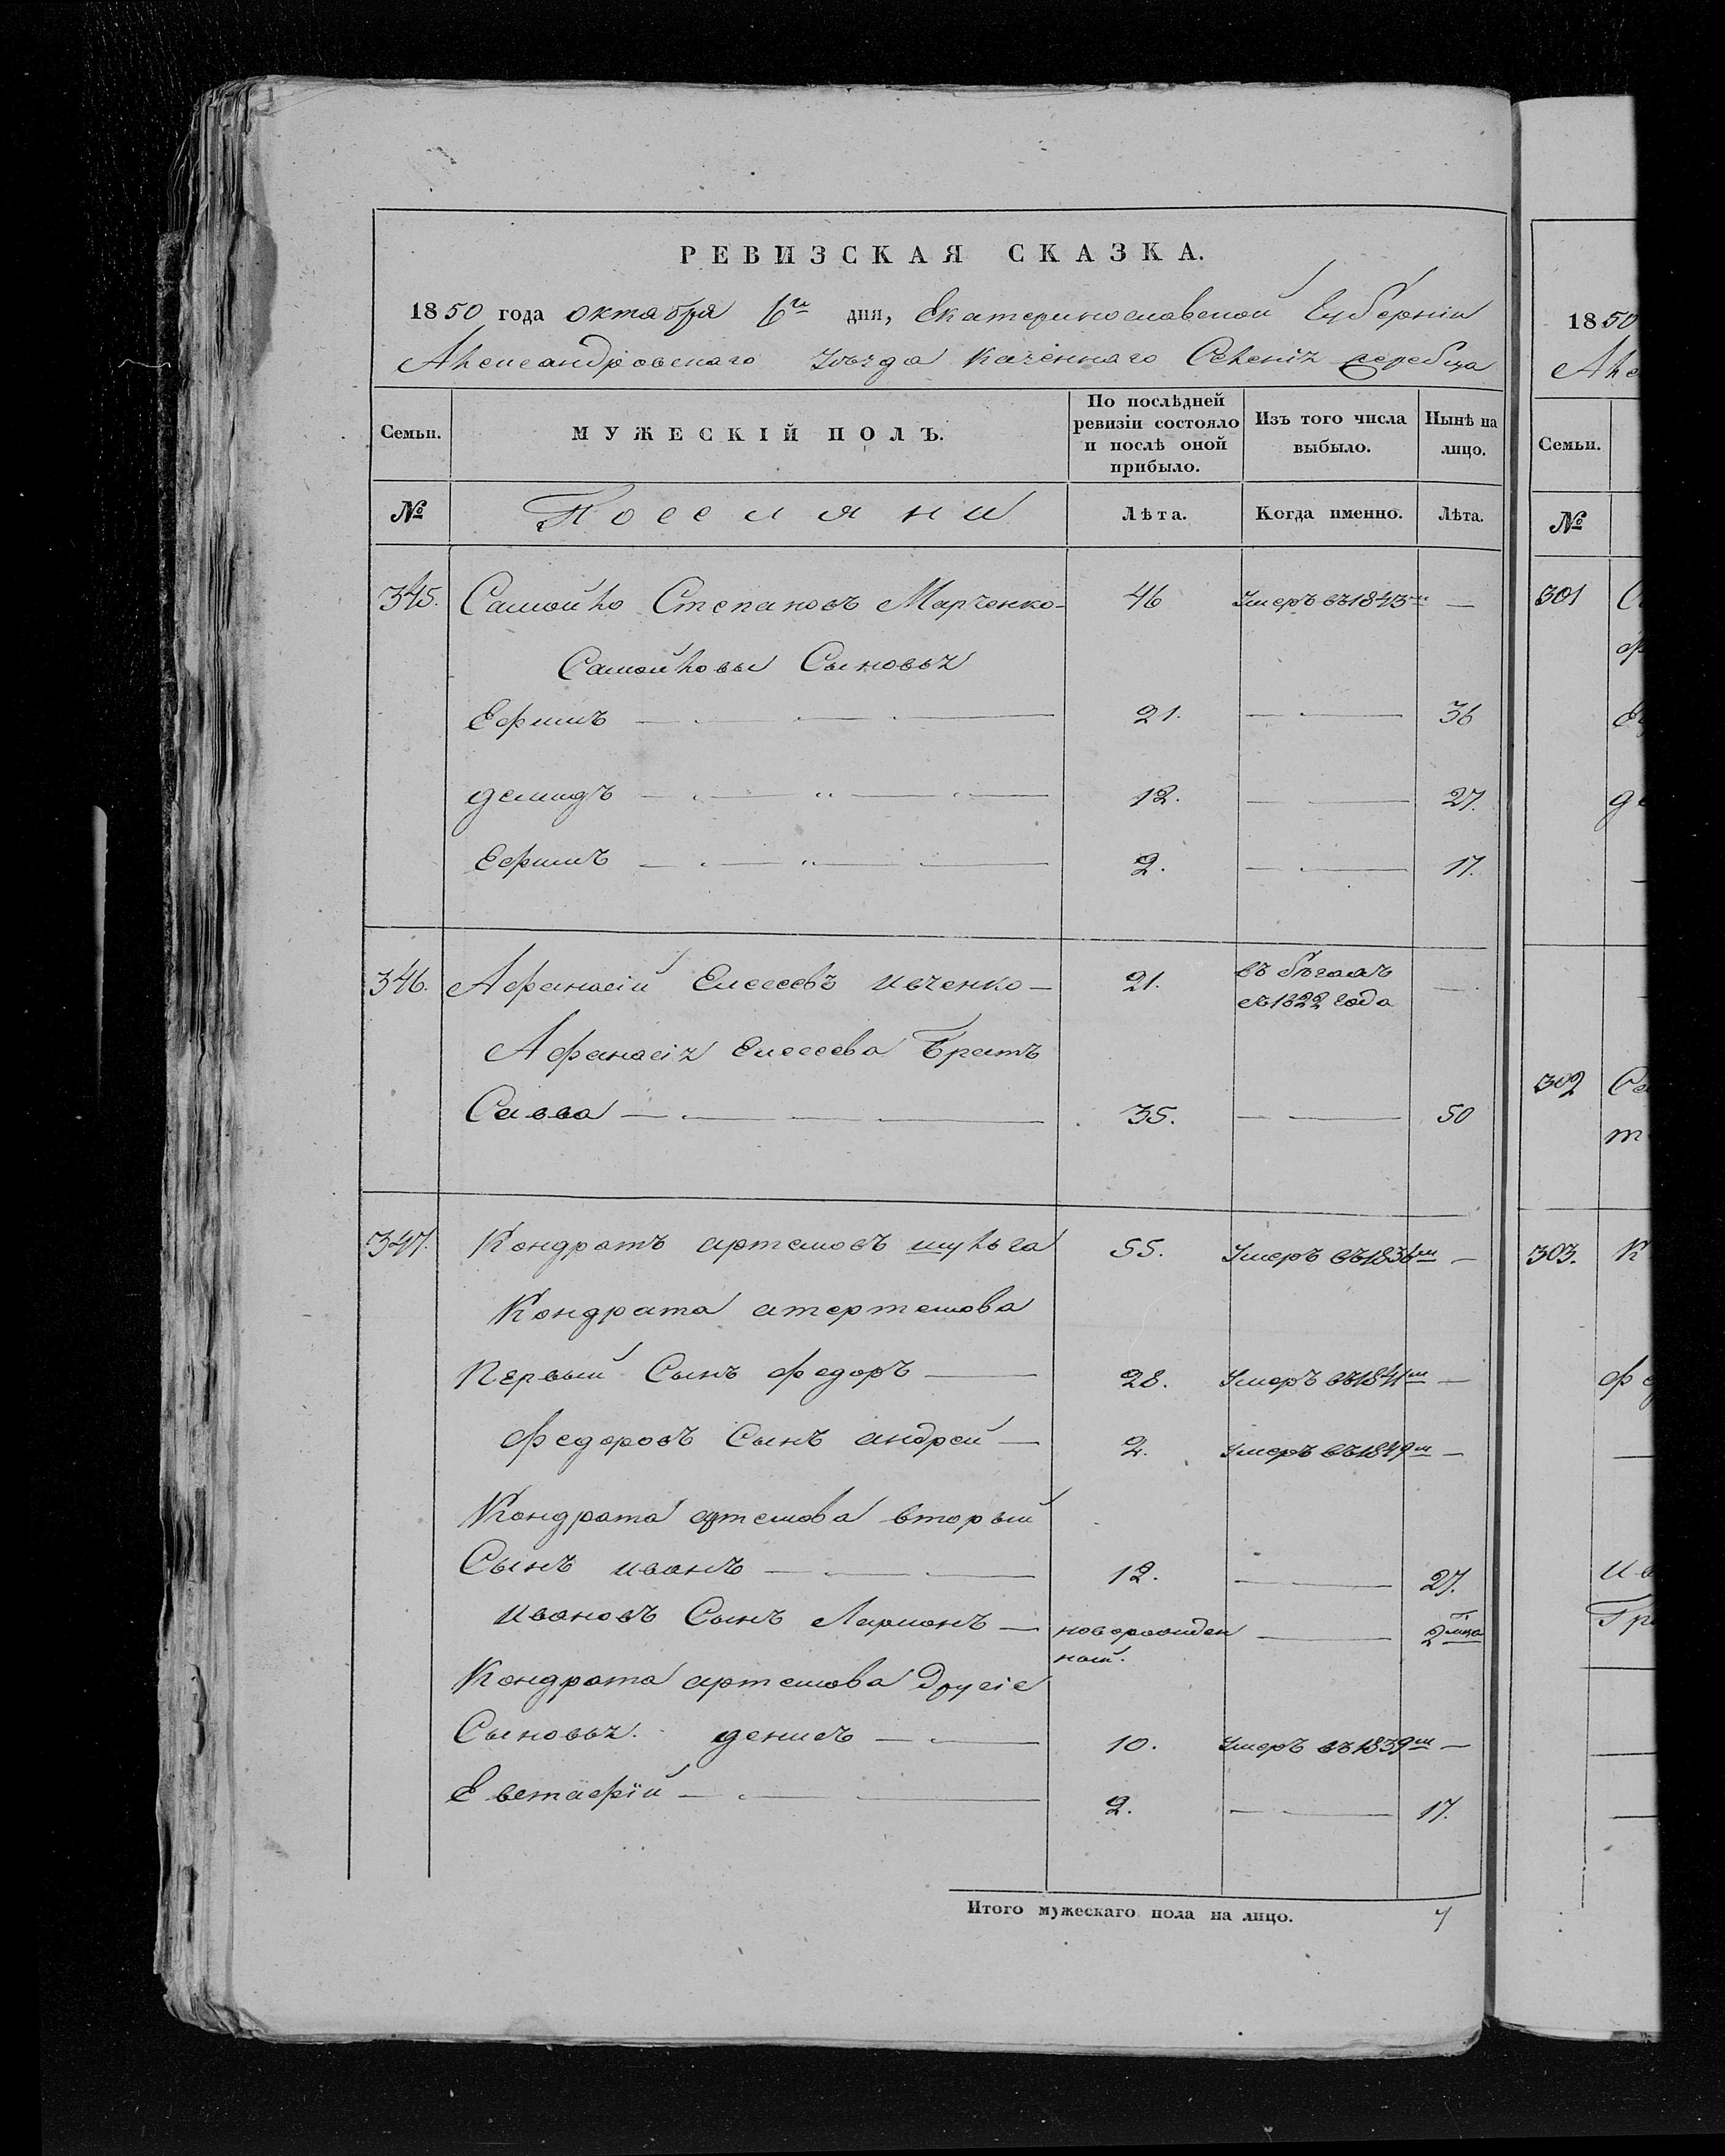 РЕВИЗСКАЯ СКАЗКА.
1850 года октября 6го дня, Екатеринославской Губерніи
Александровскаго Уѣзда казеннаго Селенія жеребца
Семьи. МУЖЕСКІЙ ПОЛЪ. По послѣдней ревизіи состояло и послѣ оной прибыло. Изъ того числа выбыло. Нынѣ на лицо.
№ Поселяни Лѣта. Когда именно. Лѣта.
345. Самойло Степановъ Марченко - 46 Умеръ въ 1843м —
Самойловы Сыновья
Ефимъ 21. — 36
демидъ 12. — 27.
Ефимъ 2. — 17.
346. Афанасій Елесеевъ ивченко - 21. въ бѣгахъ съ 1822 года —
Афанасія Елесеева Братъ
Савва 35. — 50
347. Кондратъ артемовъ шульга 55. Умеръ въ 1836м —
Кондрата атертемова
Первый Сынъ федоръ 28. Умеръ въ 1841м —
федоровъ Сынъ андрей 2. Умеръ въ 1849м —
Кондрата артемова вторый
Сынъ иванъ 12. — 27.
ивановъ Сынъ Ларионъ новорожден ный. — 2 мца
Кондрата артемова другіе
Сыновья. денисъ 10. Умеръ въ 1839м —
Евстафій 2. — 17.
Итого мужескаго пола на лицо. 7
1850
Але
Семьи.
№
301 С
ф
де
302 Са
т
303. К
фе
ив
Гри